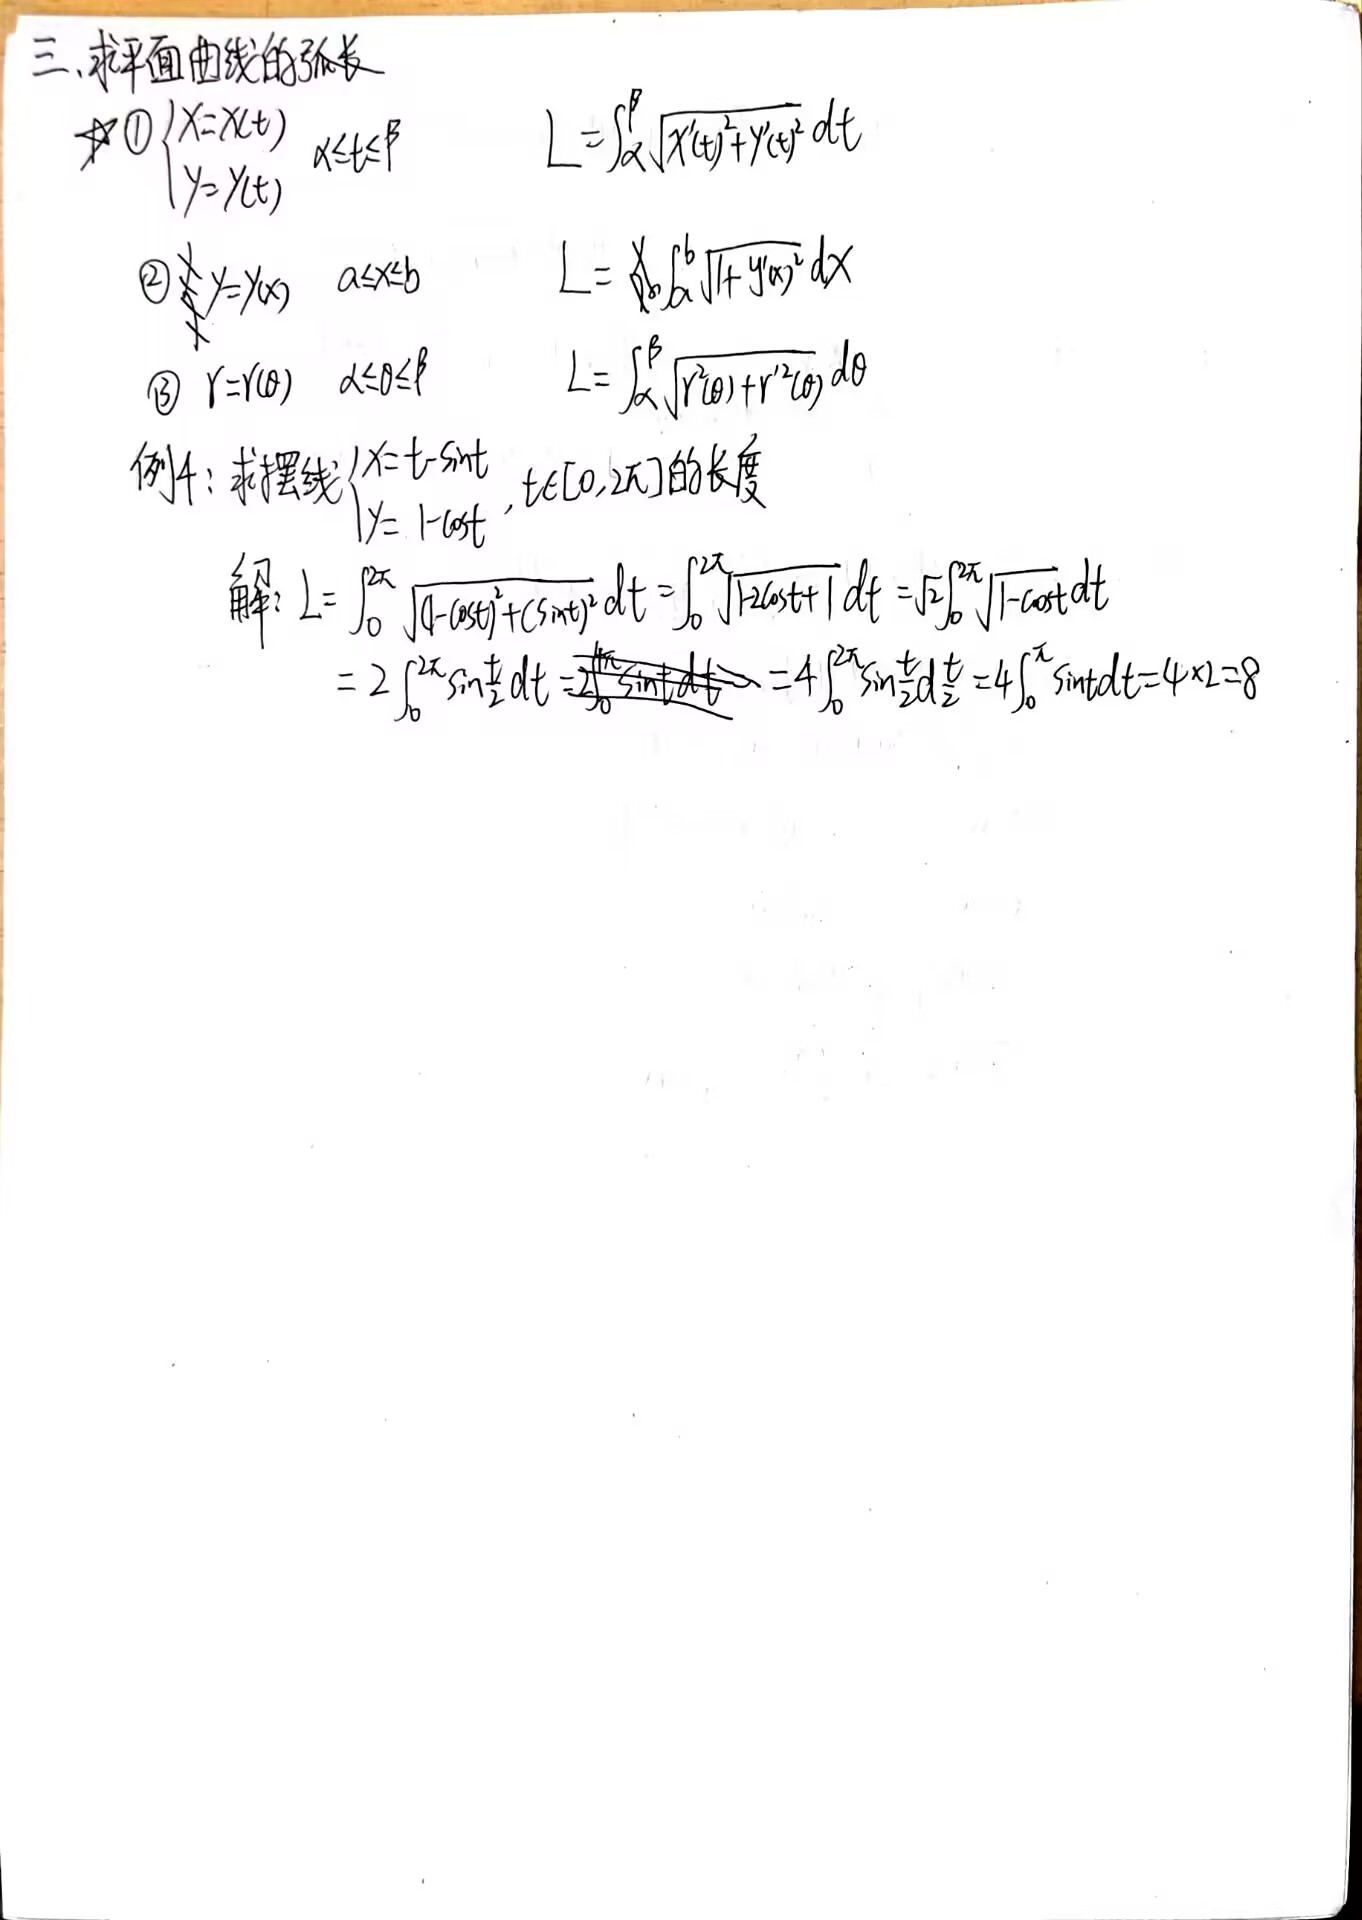 三、求平面曲线的弧长
☆① { x=x(t) y=y(t) α≤t≤β L=∫_α^β √(x'(t)²+y'(t)²) dt
② y=y(x) a≤x≤b L=∫_a^b √(1+y'(x)²) dx
③ r=r(θ) α≤θ≤β L=∫_α^β √(r²(θ)+r'²(θ)) dθ
例4:求摆线 { x=t-sint y=1-cost , t∈[0,2π]的长度
解:L=∫_0^{2π} √((1-cost)²+(sint)²) dt=∫_0^{2π} √(1-2cost+1) dt=√2∫_0^{2π} √(1-cost) dt
=2∫_0^{2π} sin t/2 dt =4∫_0^{2π} sin t/2 d t/2=4∫_0^π sint dt=4×2=8